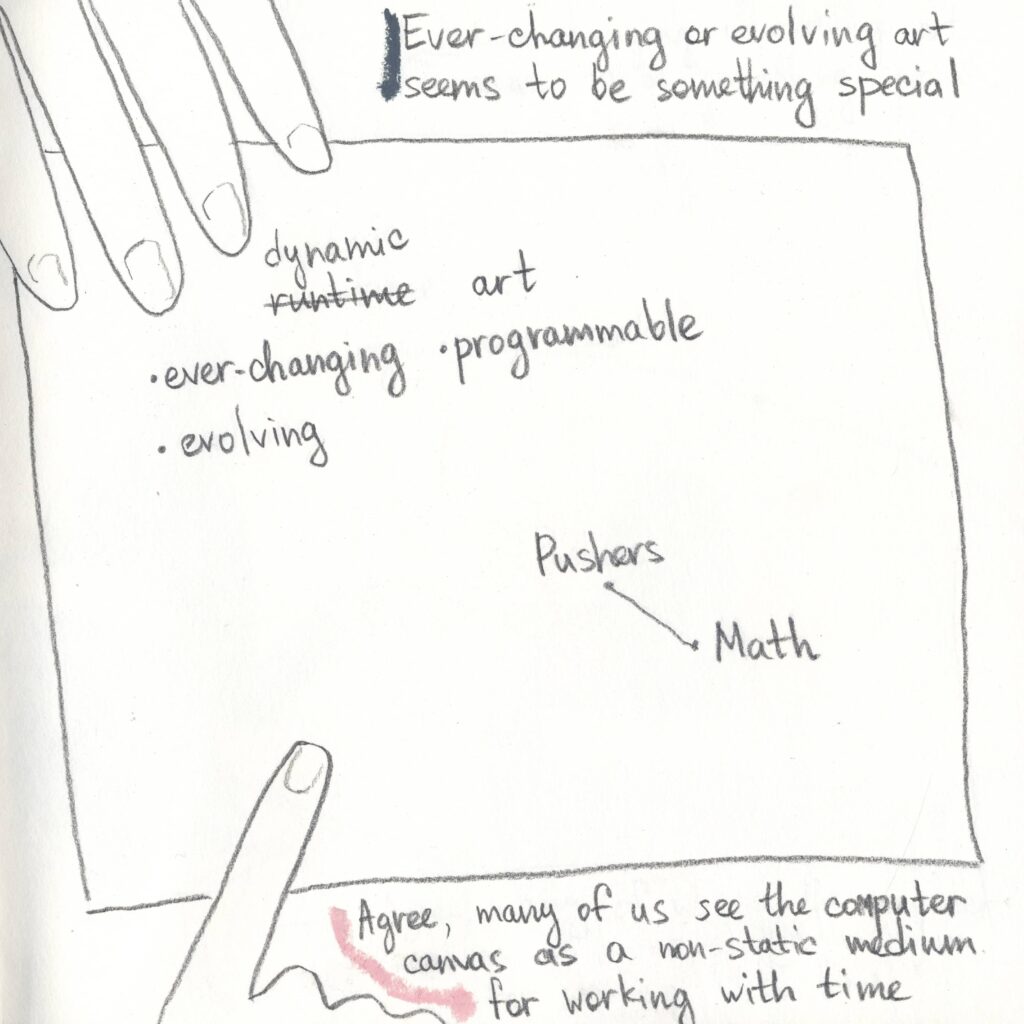 Ever-changing or evolving art
seems to be something special
dynamic
runtime art
• ever-changing • programmable
• evolving
Pushers
Math
Agree, many of us see the computer
canvas as a non-static medium
for working with time